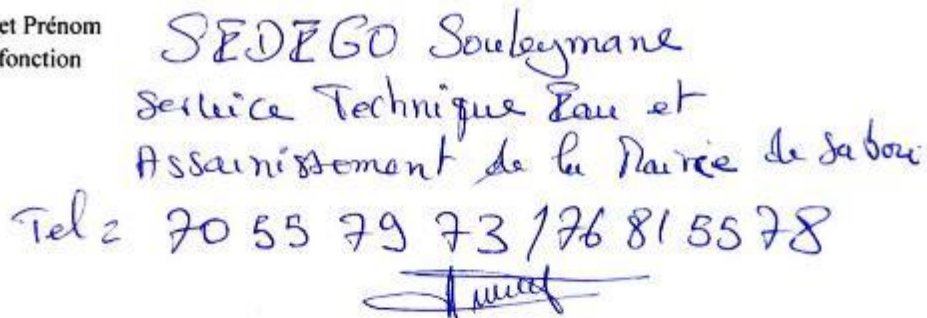 et Prénom
fonction
SEDEGO Souleymane
Service Technique Eau et
Assainissement de la Mairie de Sabou
Tel : 70 55 79 73 / 76 81 55 78